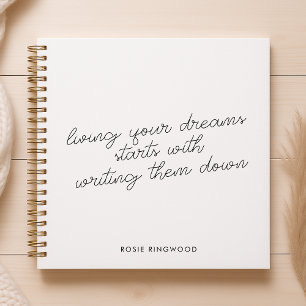 living your dreams
starts with
writing them down
ROSIE RINGWOOD